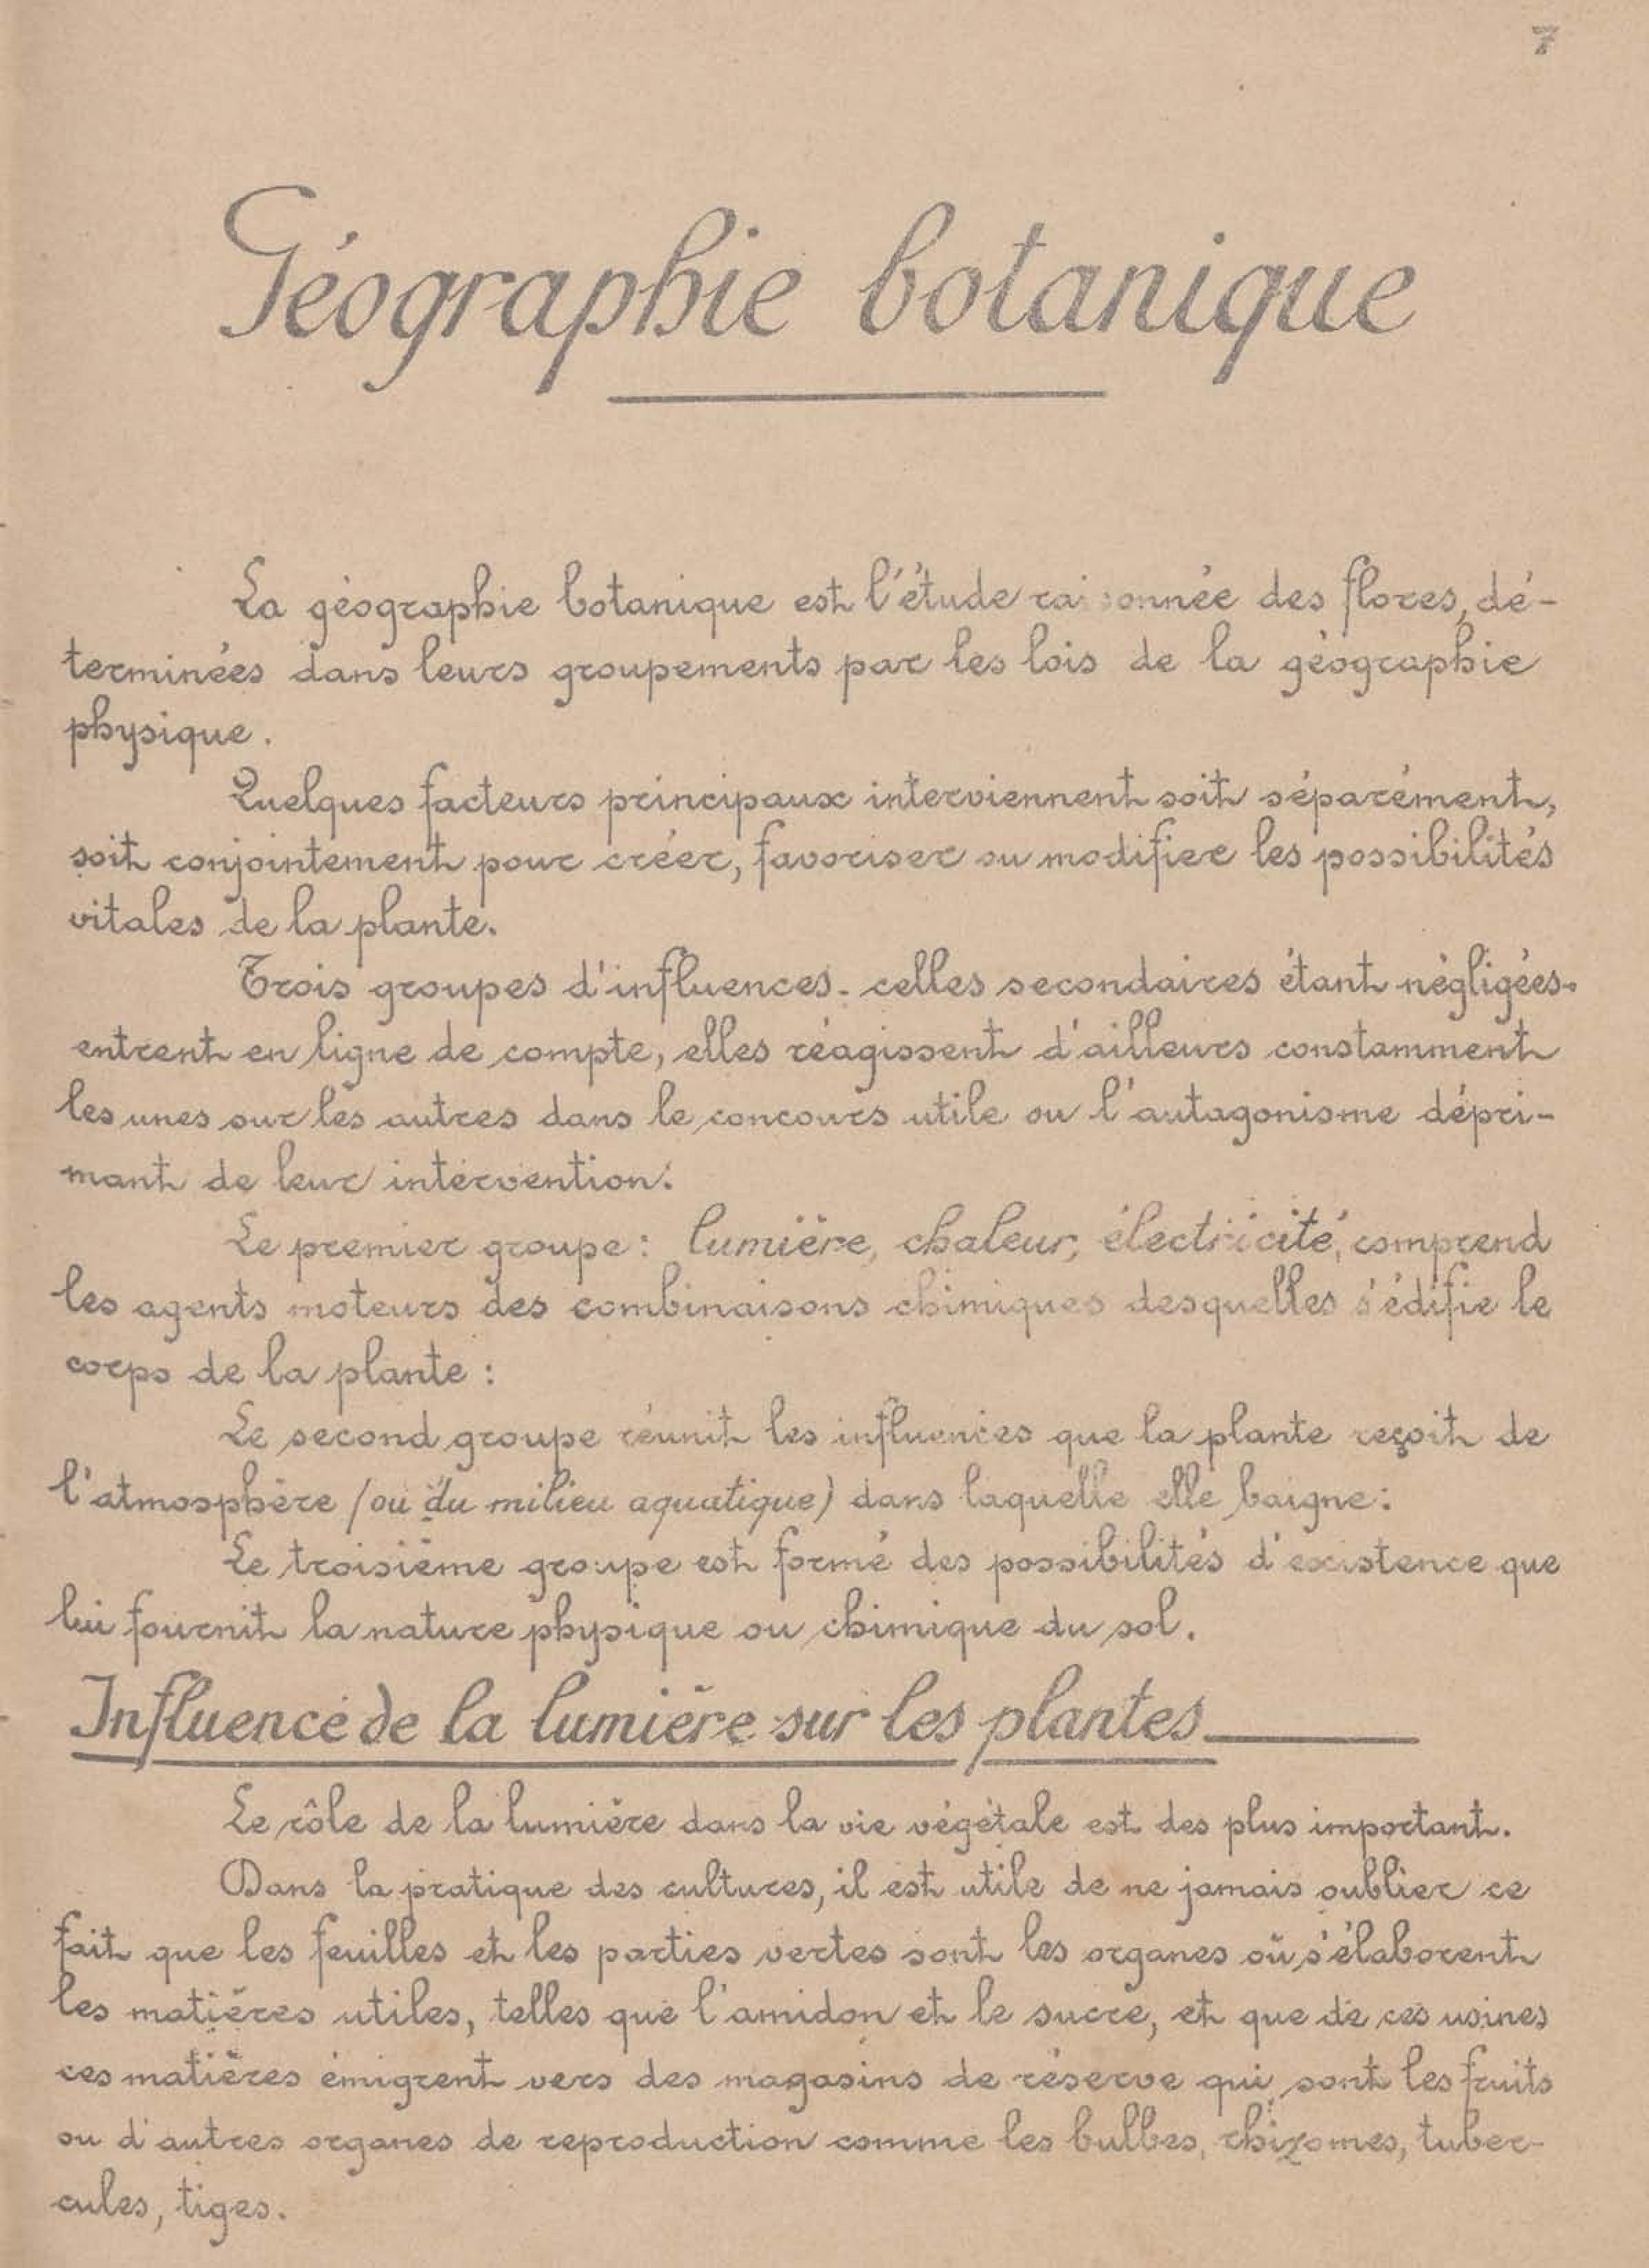 7
Géographie botanique
La géographie botanique est l'étude raisonnée des flores, dé-
terminées dans leurs groupements par les lois de la géographie
physique.
Quelques facteurs principaux interviennent soit séparément,
soit conjointement pour créer, favoriser ou modifier les possibilités
vitales de la plante.
Trois groupes d'influences - celles secondaires étant négligées -
entrent en ligne de compte, elles réagissent d'ailleurs constamment
les unes sur les autres dans le concours utile ou l'antagonisme dépri-
mant de leur intervention.
Le premier groupe : lumière, chaleur, électricité, comprend
les agents moteurs des combinaisons chimiques desquelles s'édifie le
corps de la plante :
Le second groupe réunit les influences que la plante reçoit de
l'atmosphère (ou du milieu aquatique) dans laquelle elle baigne :
Le troisième groupe est formé des possibilités d'existence que
lui fournit la nature physique ou chimique du sol.
Influence de la lumière sur les plantes
Le rôle de la lumière dans la vie végétale est des plus important.
Dans la pratique des cultures, il est utile de ne jamais oublier ce
fait que les feuilles et les parties vertes sont les organes où s'élaborent
les matières utiles, telles que l'amidon et le sucre, et que de ces usines
ces matières émigrent vers des magasins de réserve qui sont les fruits
ou d'autres organes de reproduction comme les bulbes, rhizomes, tuber-
cules, tiges.